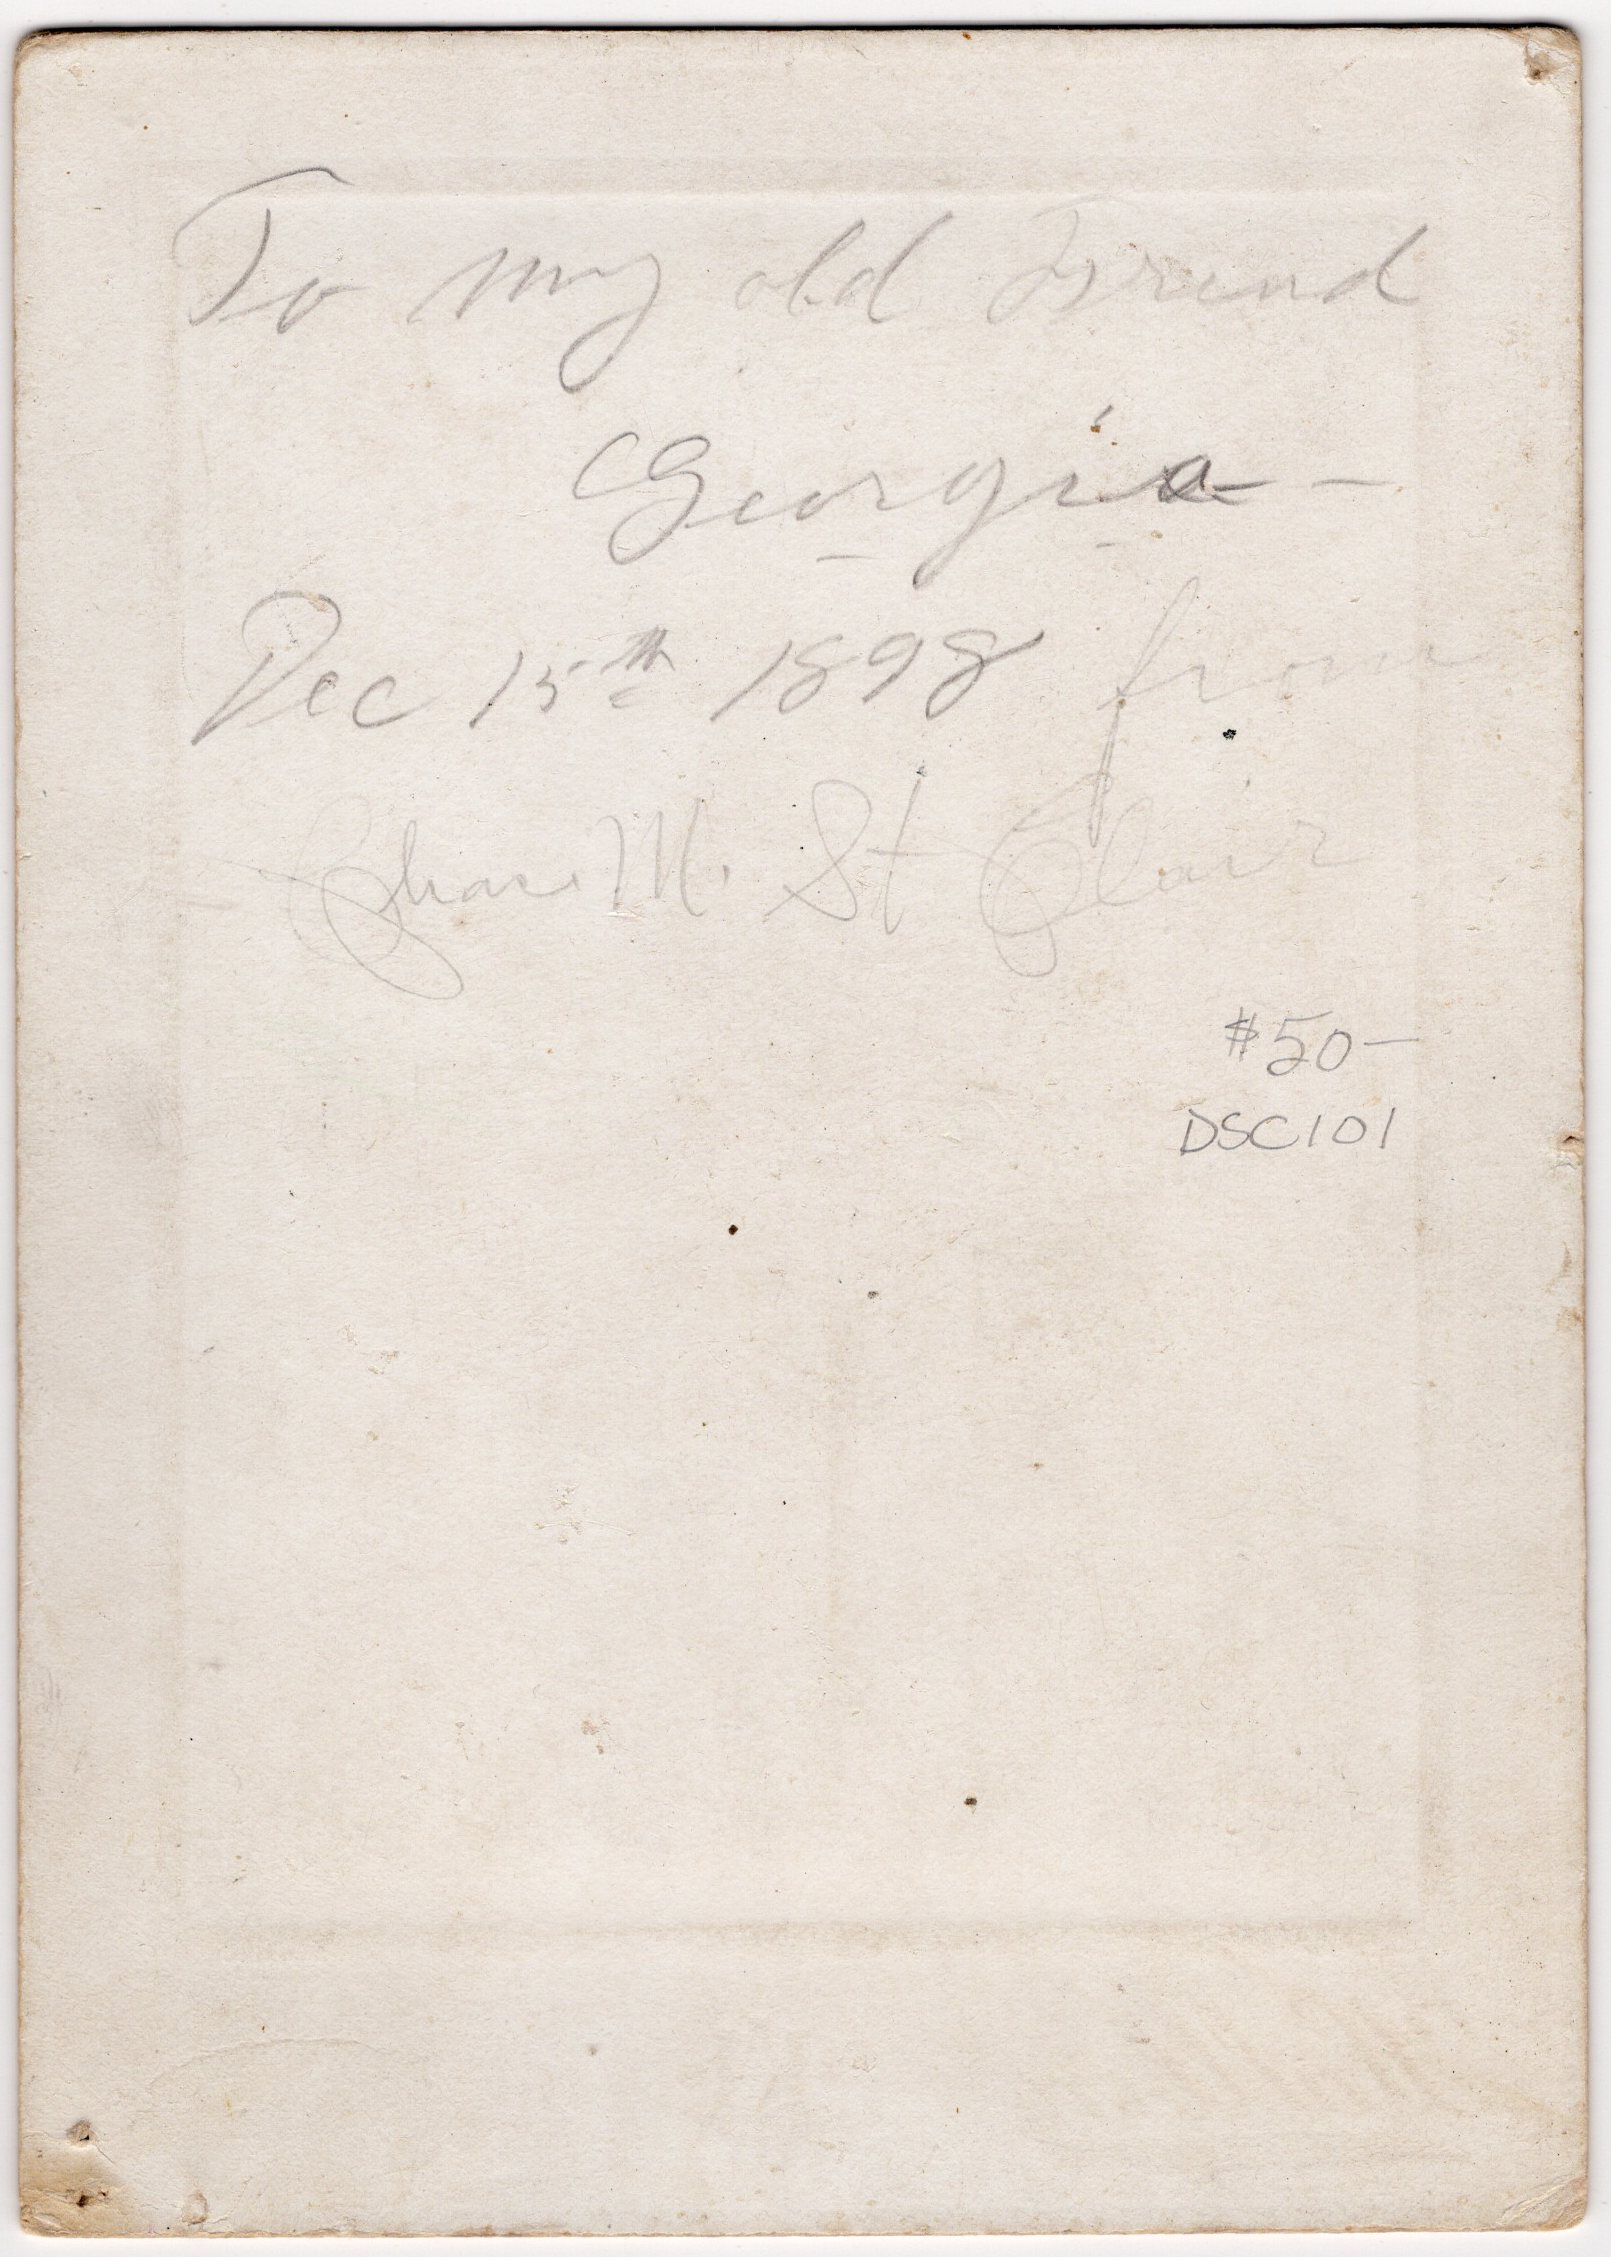 To my old Friend
Georgia -
Dec 15th 1898 from
Chas. M. St Clair
$50-
DSC101